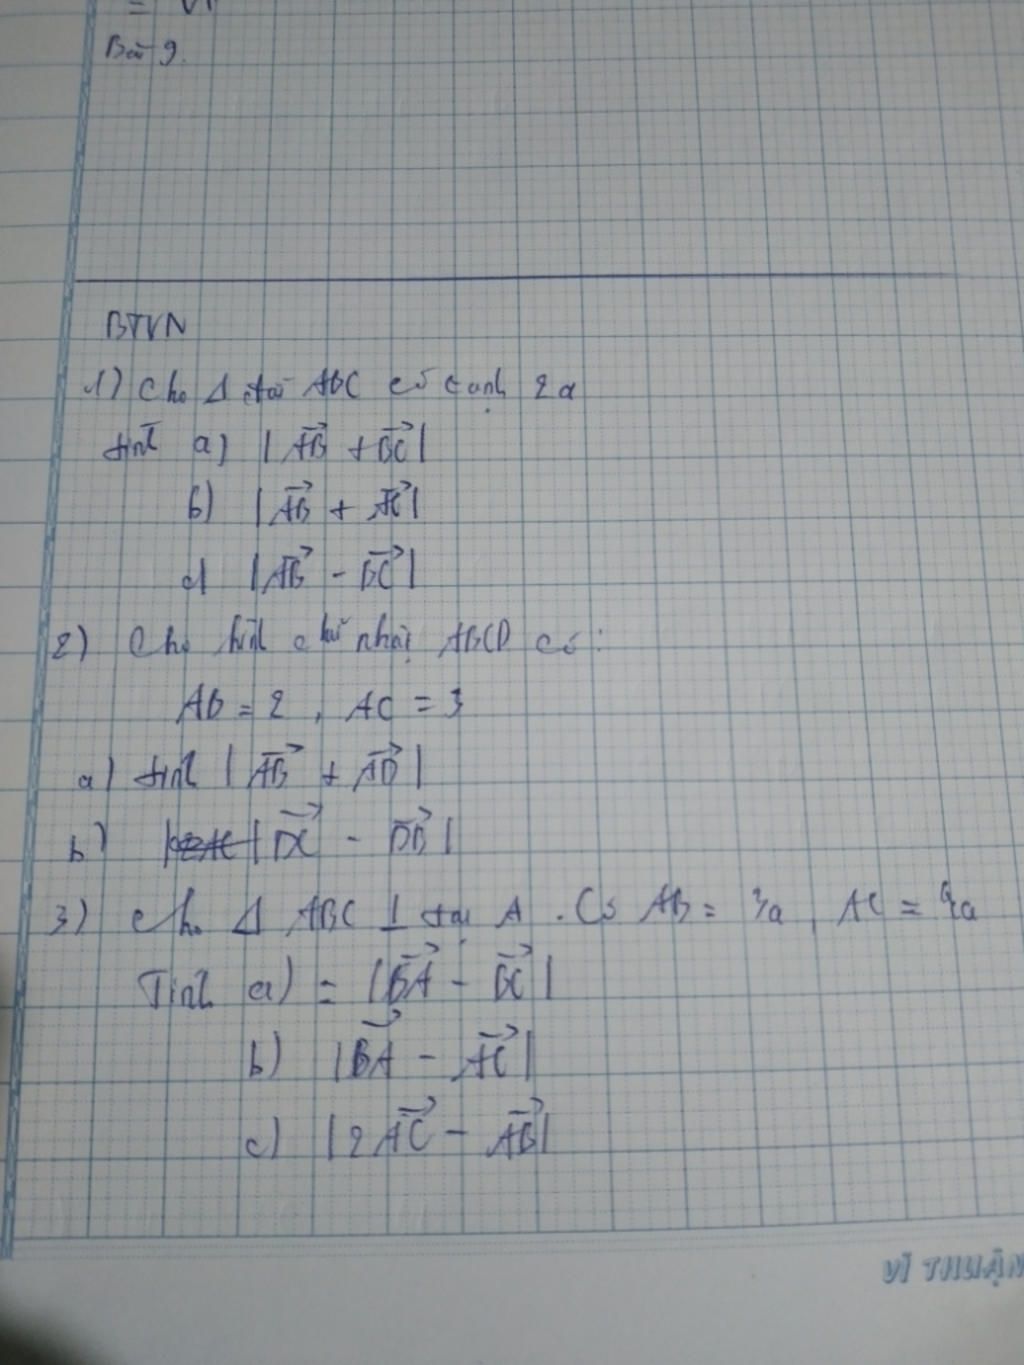 Bài 9.
BTVN
1) Cho Δ đều ABC có cạnh 2a
tính a) |AB→ + BC→|
b) |AB→ + AC→|
c) |AB→ - BC→|
2) Cho hình chữ nhật ABCD có:
AB = 2, AC = 3
a) tính |AB→ + AD→|
b) |DC→ - DB→|
3) Cho Δ ABC ⊥ tại A. Có AB = 3a, AC = 4a
Tính a) = |BA→ - BC→|
b) |BA→ - AC→|
c) |2AC→ - AB→|
VĨ THUẬN